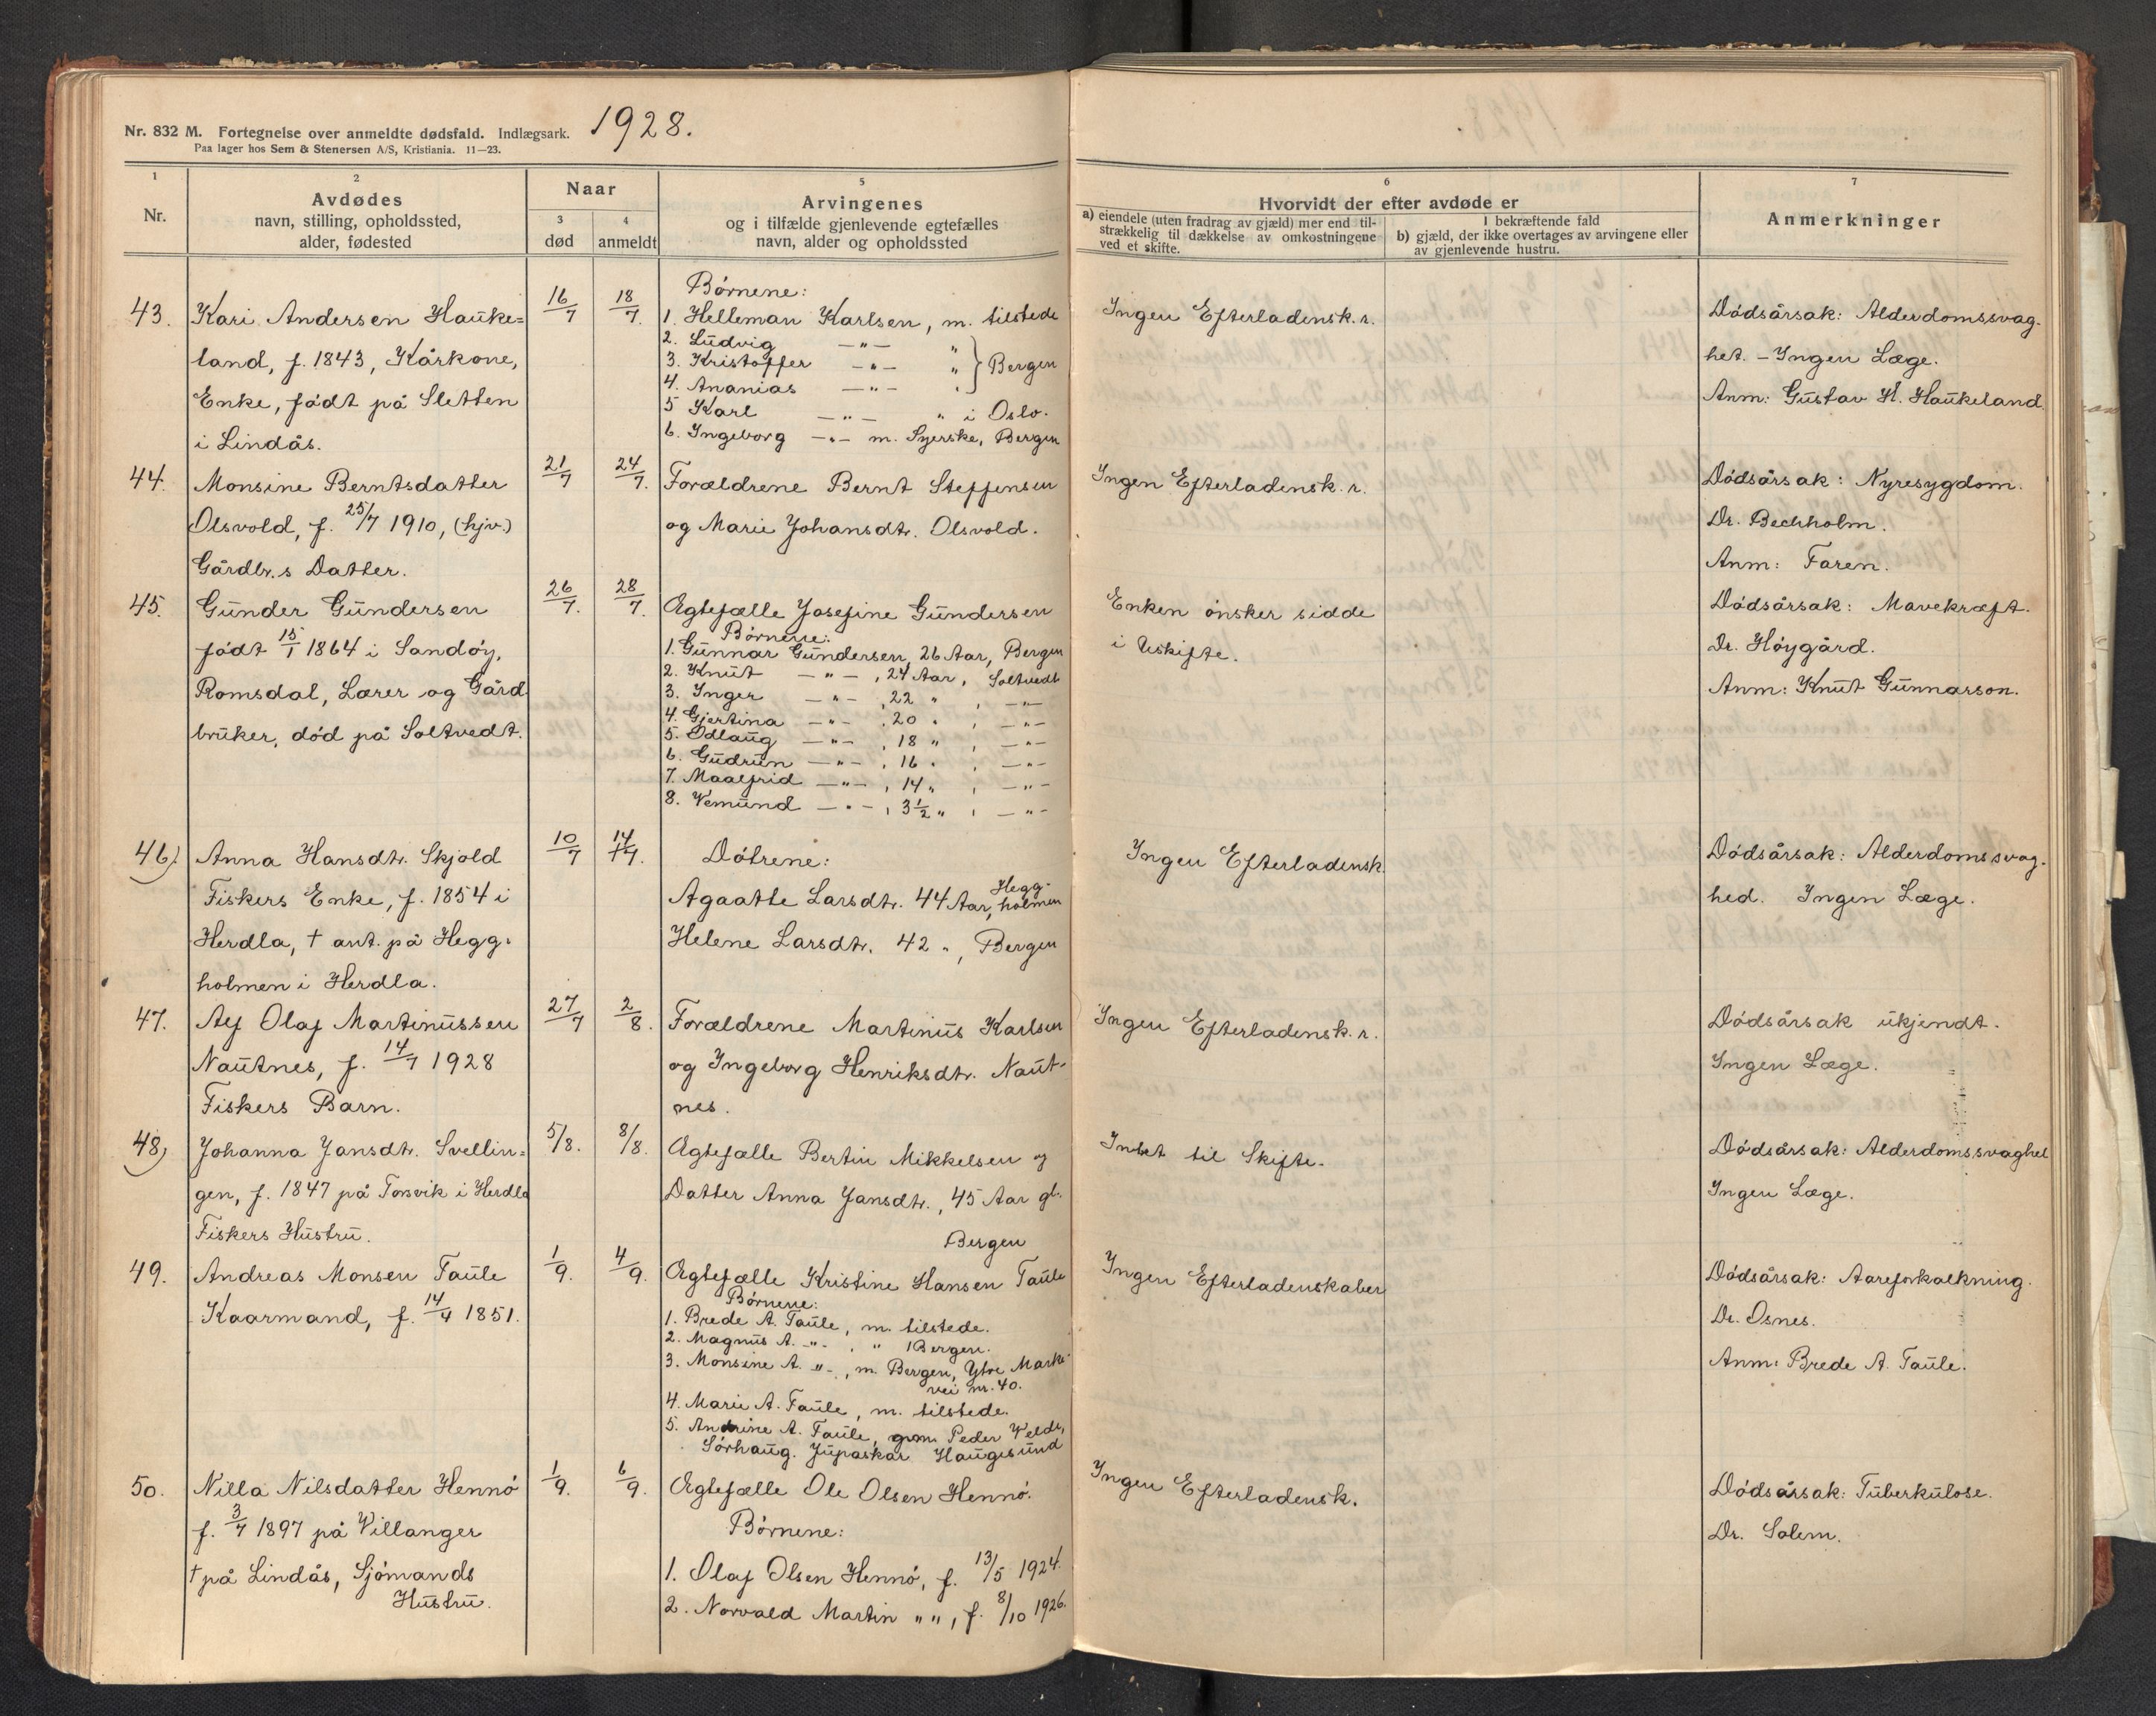 Nr. 832 M. Fortegnelse over anmeldte dødsfald. Indlægsark. 1928.
Paa lager hos Sem & Stenersen A/S, Kristiania. 11—23.
1
Nr.
2
Avdødes
navn, stilling, opholdssted,
alder, fødested
Naar
3
død
4
anmeldt
5
Arvingenes
og i tilfælde gjenlevende egtefælles
navn, alder og opholdssted
6
Hvorvidt der efter avdøde er
a) eiendele (uten fradrag av gjæld) mer end til-
strækkelig til dækkelse av omkostningene
ved et skifte.
I bekræftende fald
b) gjæld, der ikke overtages av arvingene eller
av gjenlevende hustru.
7
Anmerkninger
43. Kari Andersen Hauke=
land, f. 1843, Kårkone,
Enke, født på Sletten
i Lindås.
16/7
18/7.
Børnene:
1. Helleman Karlsen, m. tilstede
2. Ludvig —"— "
3. Kristoffer —"— " } Bergen
4. Ananias —"— "
5 Karl —"— " i Oslo.
6. Ingeborg —"— m. Syerske, Bergen
Ingen Efterladensk.r.
Dødsårsak: Alderdomssvag-
het. – Ingen Læge.
Anm: Gustav H. Haukeland.
44. Monsine Berntsdatter
Olsvold, f. 25/7 1910, (hjv.)
Gårdbr.s Datter.
21/7
24/7.
Forældrene Bernt Steffensen
og Marie Johansdtr. Olsvold.
Ingen Efterladensk.r.
Dødsårsak: Nyresygdom.
Dr. Bechholm.
Anm: Faren.
45. Gunder Gundersen
født 15/1 1864 i Sandøy,
Romsdal, Lærer og Gård
bruker, død på Soltvedt.
26/7.
28/7.
Ægtefælle Josefine Gundersen
Børnene:
1. Gunnar Gundersen, 26 Aar, Bergen
2. Knut —"—, 24 Aar, Soltvedt
3. Inger —"—, 22 ", —"—
4. Gjertina —"—, 20 ", —"—
5. Odlaug —"—, 18 ", —"—
6. Gudrun —"—, 16 ", —"—
7. Maalfrid —"—, 14 ", —"—
8. Vemund —"—, 3½ ", —"—
Enken ønsker sidde
i Uskifte.
Dødsårsak: Mavekræft.
Dr. Høygård.
Anm: Knut Gunnarson.
46) Anna Hansdtr. Skjold
Fiskers Enke, f. 1854 i
Herdla, † ant. på Hegg-
holmen i Herdla.
10/7
14/7.
Døtrene:
Agaatte Larsdtr. 44 Aar, Hegg-
holmen
Helene Larsdtr. 42 ", Bergen
Ingen Efterladensk.
Dødsårsak: Alderdomssvag-
hed. Ingen Læge.
47. Alf Olaf Martinussen
Nautnes, f. 14/7 1928
Fiskers Barn.
27/7
2/8.
Forældrene Martinus Karlsen
og Ingeborg Henriksdtr. Naut-
nes.
Ingen Efterladensk.r.
Dødsårsak ukjendt.
Ingen Læge.
48) Johanna Jansdtr. Svellin=
gen, f. 1847 på Torsvik i Herdla
Fiskers Hustru.
5/8.
8/8.
Ægtefælle Bertin Mikkelsen og
Datter Anna Jansdtr., 45 Aar gl.
Bergen
Intet til Skifte.
Dødsårsak: Alderdomssvaghet
Ingen Læge.
49. Andreas Monsen Taule
Kaarmand, f. 14/4 1851.
1/9.
4/9.
Ægtefælle Kristine Hansen Taule
Børnene:
1. Brede A. Taule, m. tilstede.
2. Magnus A. —"—, " Bergen.
3. Monsine A. —"—, m. Bergen, Ytre Marke-
vei nr. 40.
4. Marie A. Taule, m. tilstede.
5. Andrine A. Taule, gm. Peder Velde,
Sørhaug. Haugesund
Ingen Efterladenskaber
Dødsårsak: Aareforkalkning.
Dr. Osnes.
Anm: Brede A. Taule.
50. Nilla Nilsdatter Hennø
f. 3/7 1897 på Villanger
† på Lindås, Sjømands
Hustru.
1/9.
6/9.
Ægtefælle Ole Olsen Hennø.
Børnene:
1. Olaf Olsen Hennø, f. 13/5 1924.
2. Norvald Martin " ", f. 8/10 1926.
Ingen Efterladensk.
Dødsårsak: Tuberkulose.
Dr. Solem.